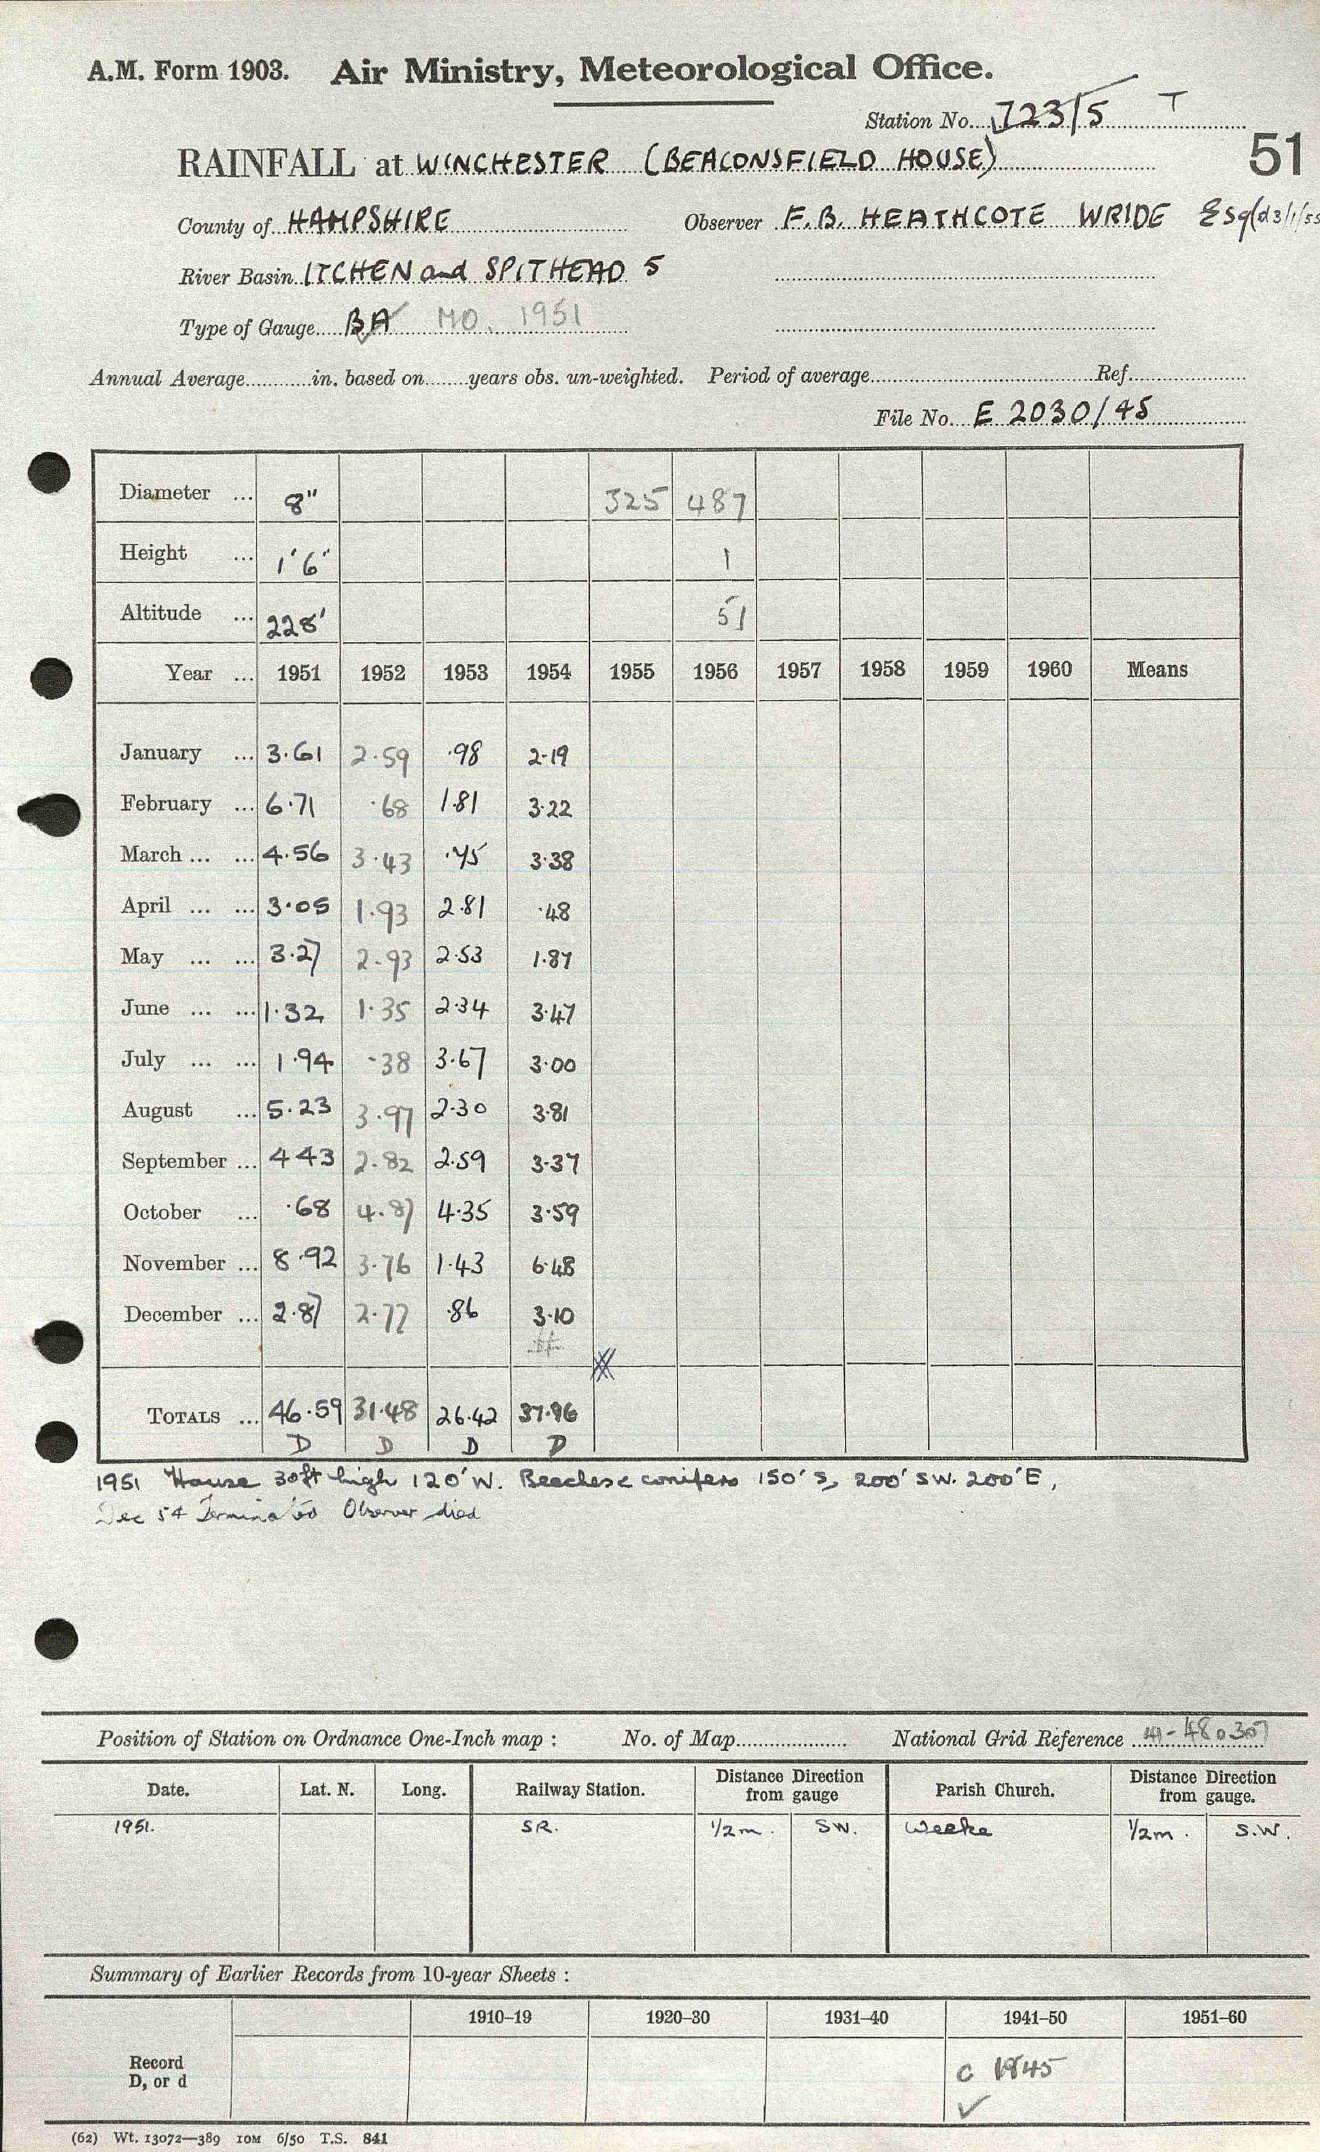 A.M. Form 1903. Air Ministry, Meteorological Office.
Station No. 723/5 T
51
RAINFALL at WINCHESTER (BEACONSFIELD HOUSE)
County of HAMPSHIRE Observer F.B. HEATHCOTE WRIDE Esq (d 3/1/55
River Basin ITCHEN and SPITHEAD 5
Type of Gauge BA MO. 1951
Annual Average in. based on years obs. un-weighted. Period of average Ref.
File No. E 2030/45
Diameter ... 8" 325 487
Height ... 1'6" 1
Altitude ... 228' 51
Year ... 1951 1952 1953 1954 1955 1956 1957 1958 1959 1960 Means
January ... 3.61 2.59 .98 2.19
February ... 6.71 .68 1.81 3.22
March ... ... 4.56 3.43 .75 3.38
April ... ... 3.05 1.93 2.81 .48
May ... ... 3.27 2.93 2.53 1.87
June ... ... 1.32 1.35 2.34 3.47
July ... ... 1.94 .38 3.67 3.00
August ... 5.23 3.97 2.30 3.81
September ... 4 43 2.82 2.59 3.37
October ... .68 4.87 4.35 3.59
November ... 8.92 3.76 1.43 6.48
December ... 2.87 2.77 .86 3.10
TOTALS ... 46.59 31.48 26.42 37.96
D D D D
1951 House 30ft high 120' W. Beeches & conifers 150' S, 200' SW. 200' E,
Dec 54 Terminated Observer died
Position of Station on Ordnance One-Inch map : No. of Map National Grid Reference 41-480307
Date. Lat. N. Long. Railway Station. Distance from gauge Direction Parish Church. Distance from gauge. Direction
1951. SR. 1/2 m. SW. Weeke 1/2 m. S.W.
Summary of Earlier Records from 10-year Sheets :
1910–19 1920–30 1931–40 1941–50 1951–60
Record
D, or d
C 1945
(62) Wt. 13072—389 10M 6/50 T.S. 841